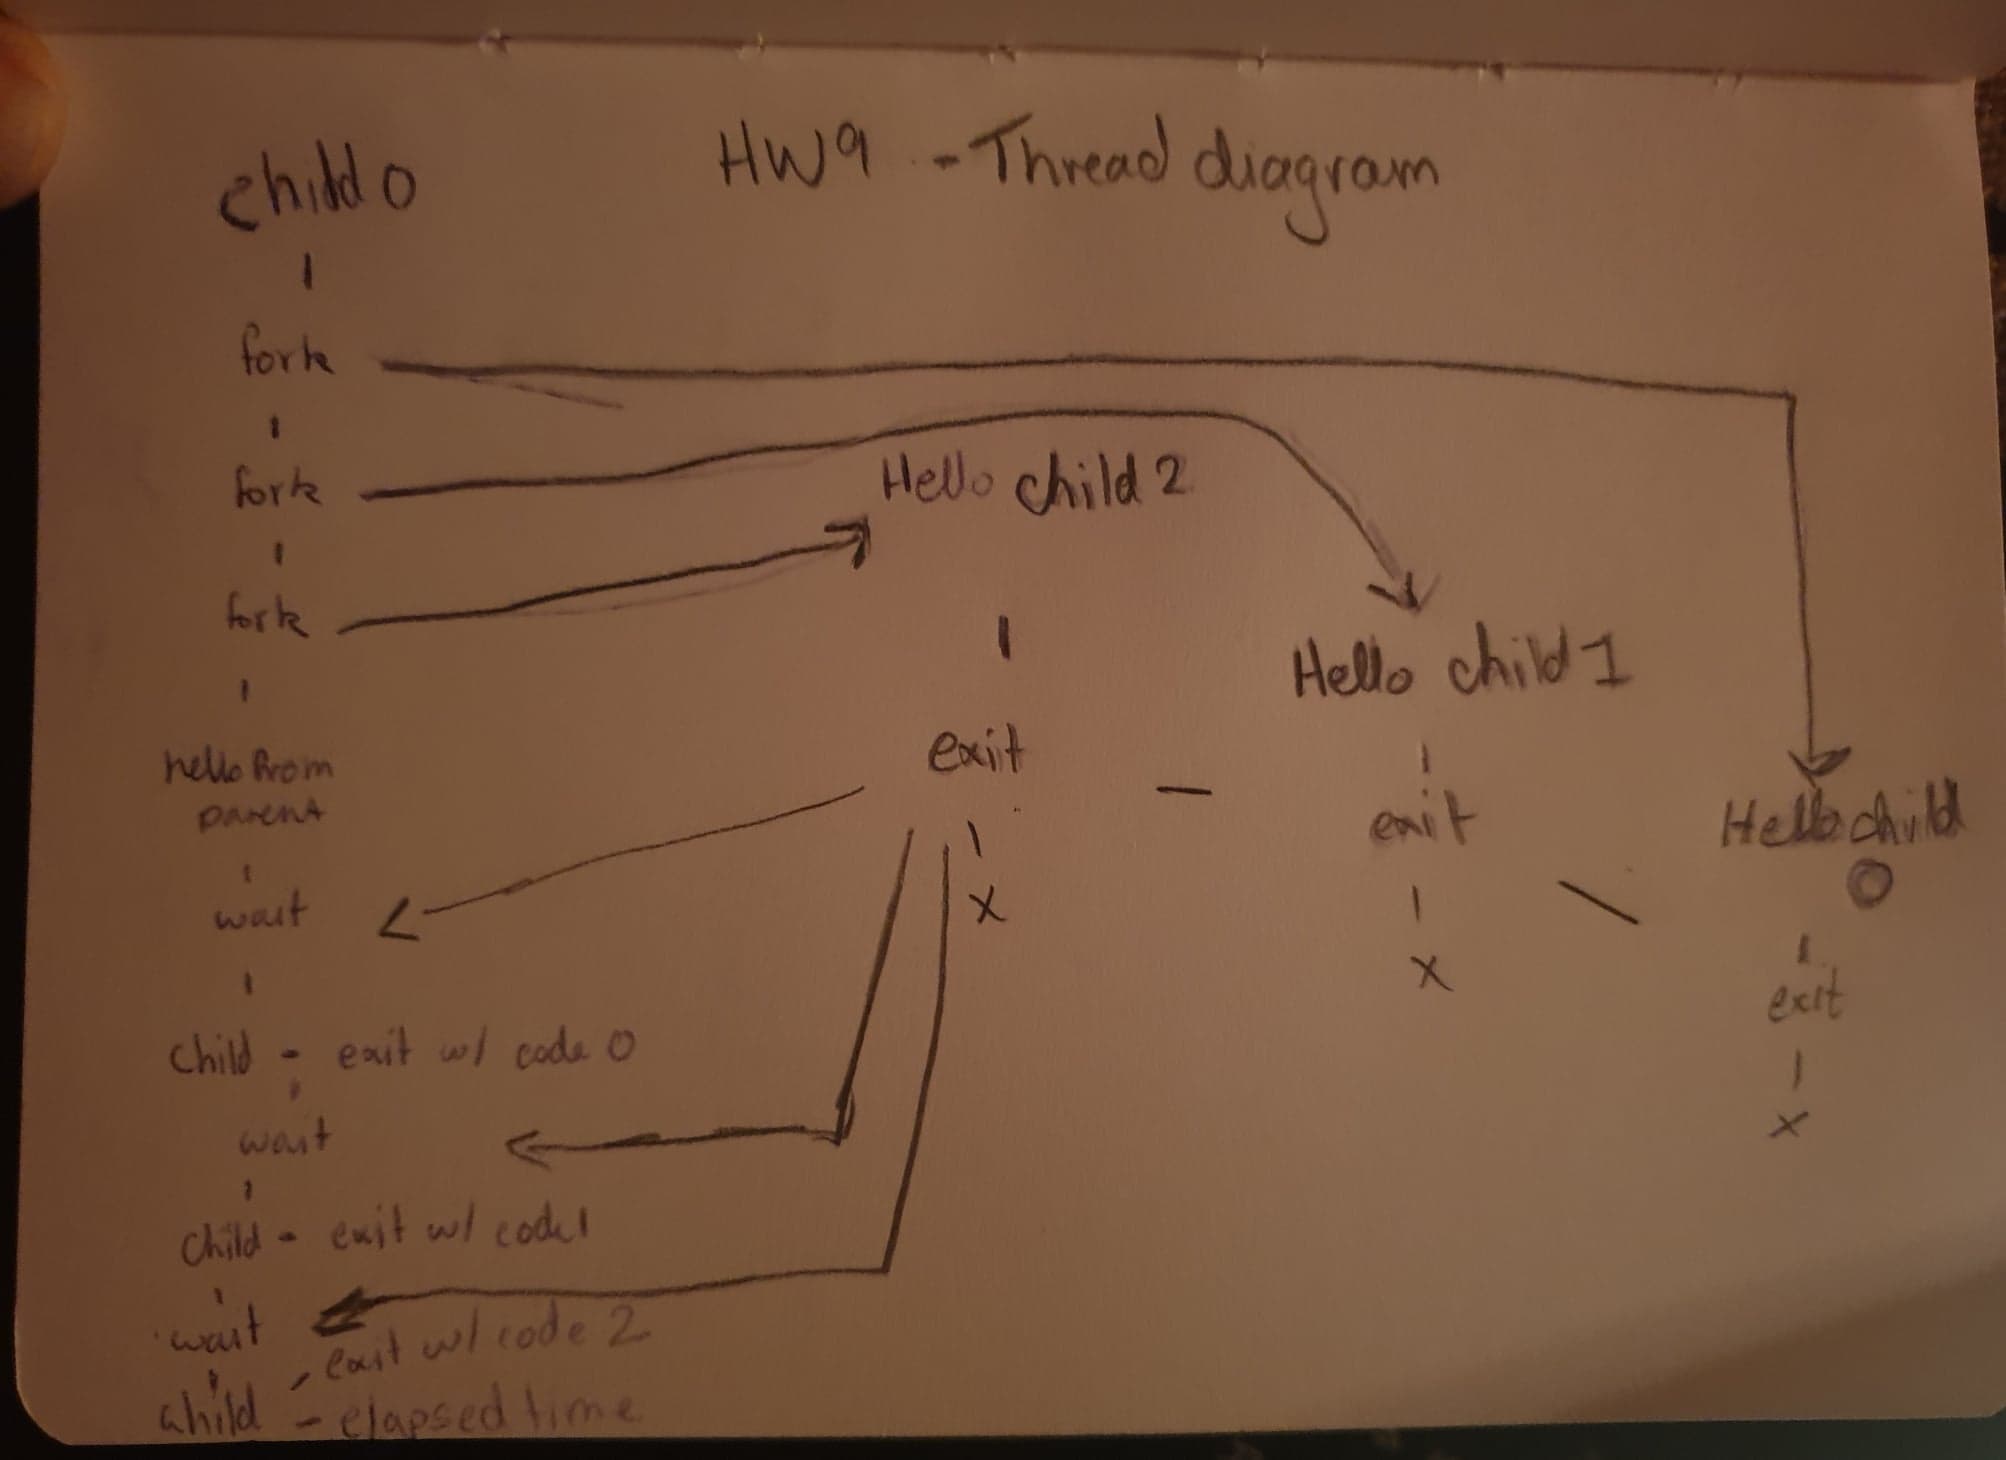 HW9 - Thread diagram
child 0
fork
fork
fork
hello from
parent
wait
child - exit w/ code 0
wait
child - exit w/ code 1
wait
exit w/ code 2
child - elapsed time
Hello child 2
exit
x
Hello child 1
exit
x
Hello child
0
exit
x